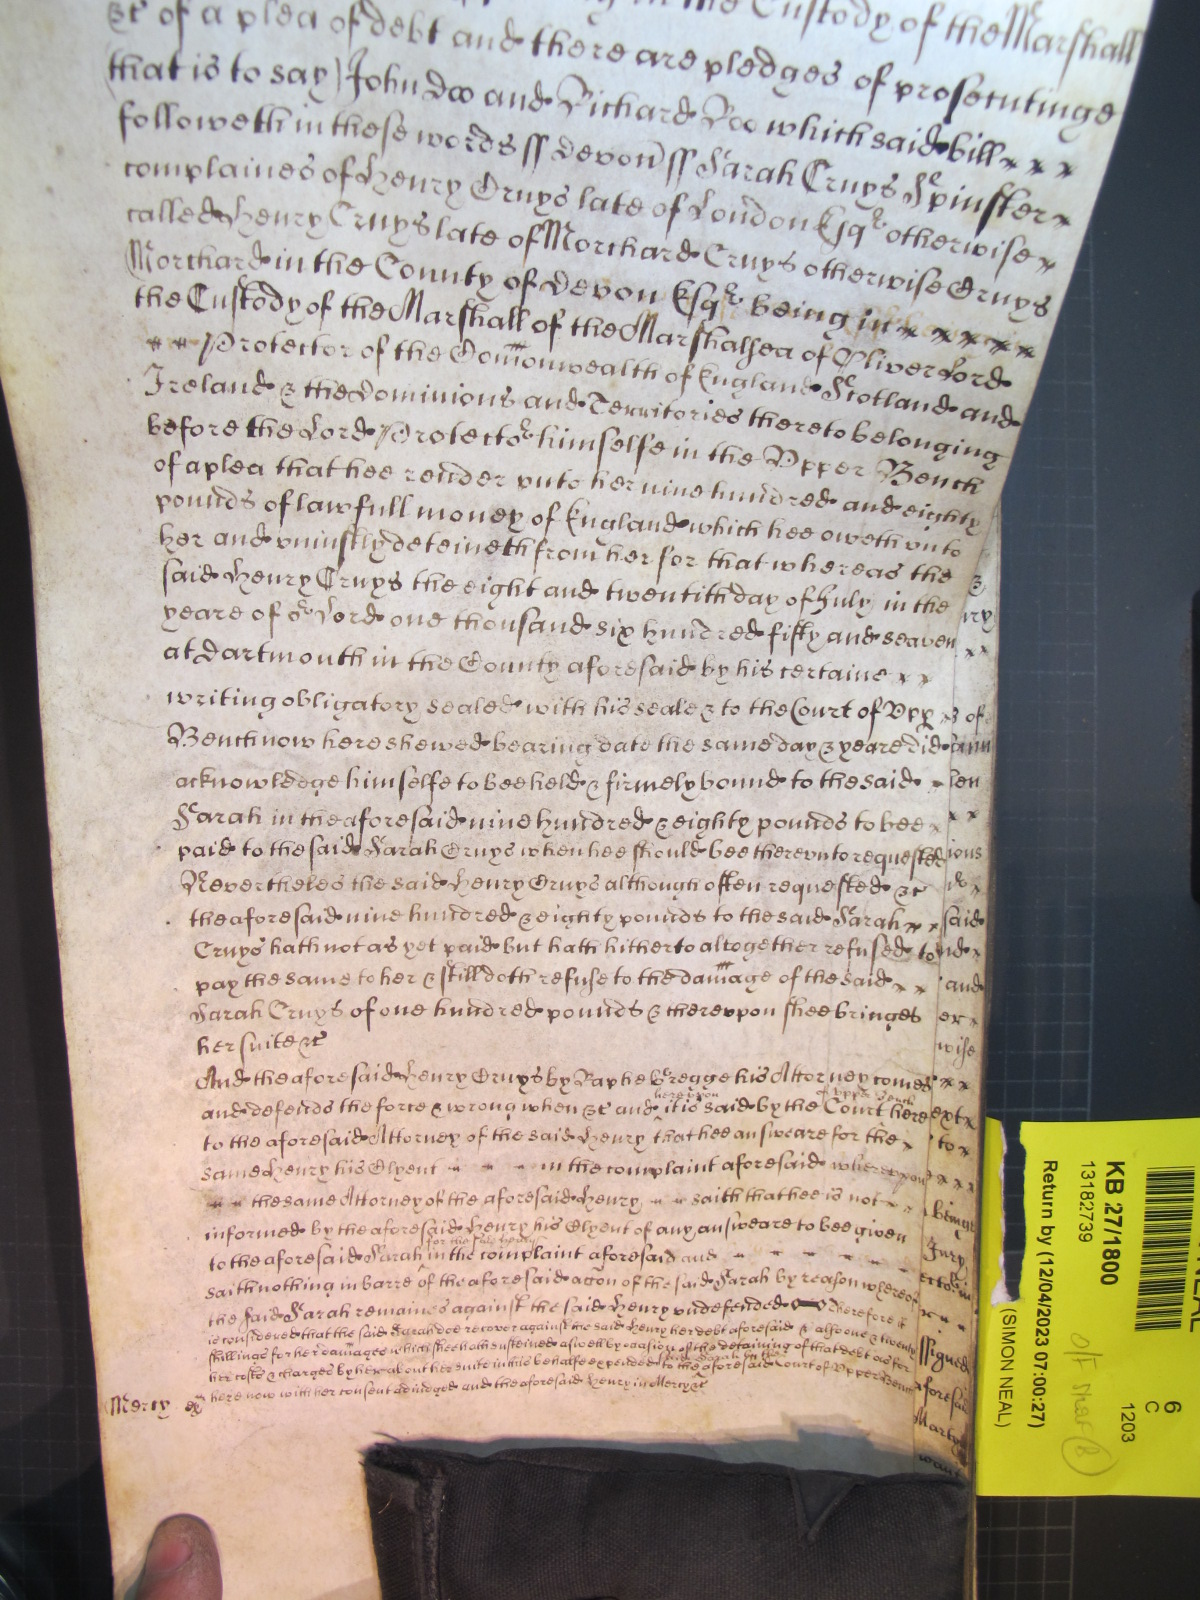 in the Custody of the Marshall
&c of a plea of debt and there are pledges of prosecutinge
(that is to say) John Doo and Richard Roo which said bill
followeth in these words ss Devon ss Sarah Cruys Spinster
complaines of Henry Cruys late of London Esqr otherwise
called Henry Cruys late of Morchard Cruys otherwise Cruys
Morchard in the County of Devon Esqr being in
the Custody of the Marshall of the Marshalsea of Oliver Lord
Protector of the Comonwealth of England Scotland and
Ireland & the Dominions and Territories thereto belonging
before the Lord Protector himselfe in the Vpper Bench
of a plea that hee render vnto her nine hundred and eighty
pounds of lawfull money of England which hee oweth vnto
her and vniustly deteineth from her for that whereas the
said Henry Cruys the eight and twentith day of July in the
yeare of or Lord one thousand six hundred fifty and seaven
at Dartmouth in the County aforesaid by his certaine
writing obligatory sealed with his seale & to the Court of Vpp
Bench now here shewed bearing date the same day & yeare did
acknowledge himselfe to bee held & firmely bound to the said
Sarah in the aforesaid nine hundred & eighty pounds to bee
paid to the said Sarah Cruys when hee should bee therevnto requested
Neverthelés the said Henry Cruys although often requested &c
the aforesaid nine hundred & eighty pounds to the said Sarah
Cruys hath not as yet paid but hath hitherto altogether refused to
pay the same to her & still doth refuse to the damage of the said
Sarah Cruys of one hundred pounds & therevpon shee bringes
her suite &c
And the aforesaid Henry Cruys by Raphe Gregge his Attorney comes
and defends the force & wrong when &c and herevpon it is said by the Court of Vpper Bench here
to the aforesaid Attorney of the said Henry that hee answeare for the
same Henry his Clyent in the complaint aforesaid wherevpon
the same Attorney of the aforesaid Henry saith that hee is not
informed by the aforesaid Henry his Clyent of any answeare to bee given
to the aforesaid Sarah for the said Henry in the complaint aforesaid and
saith nothing in barre of the aforesaid acc̃on of the said Sarah by reason whereof
the said Sarah remaines against the said Henry vndefended Therefore it
is considered that the said Sarah doe recover against the said Henry her debt aforesaid & alsoe one & twenty
shillings for her damages which shee hath susteined aswell by occasion of the deteining of that debt as for
her costs & charges by her about her suite in this behalfe expended to the said Sarah by the aforesaid Court of Vpper Bench
here now with her consent adiudged and the aforesaid Henry in Mercy &c
Mercy
&
ry
s of
len
ions
said
and
er
wise
ext
to
being
Jury
ssigned
aforesai
Marty
want
KB 27/1800
13182739
Return by (12/04/2023 07:00:27)
(SIMON NEAL)
6
C
1203
NEAL